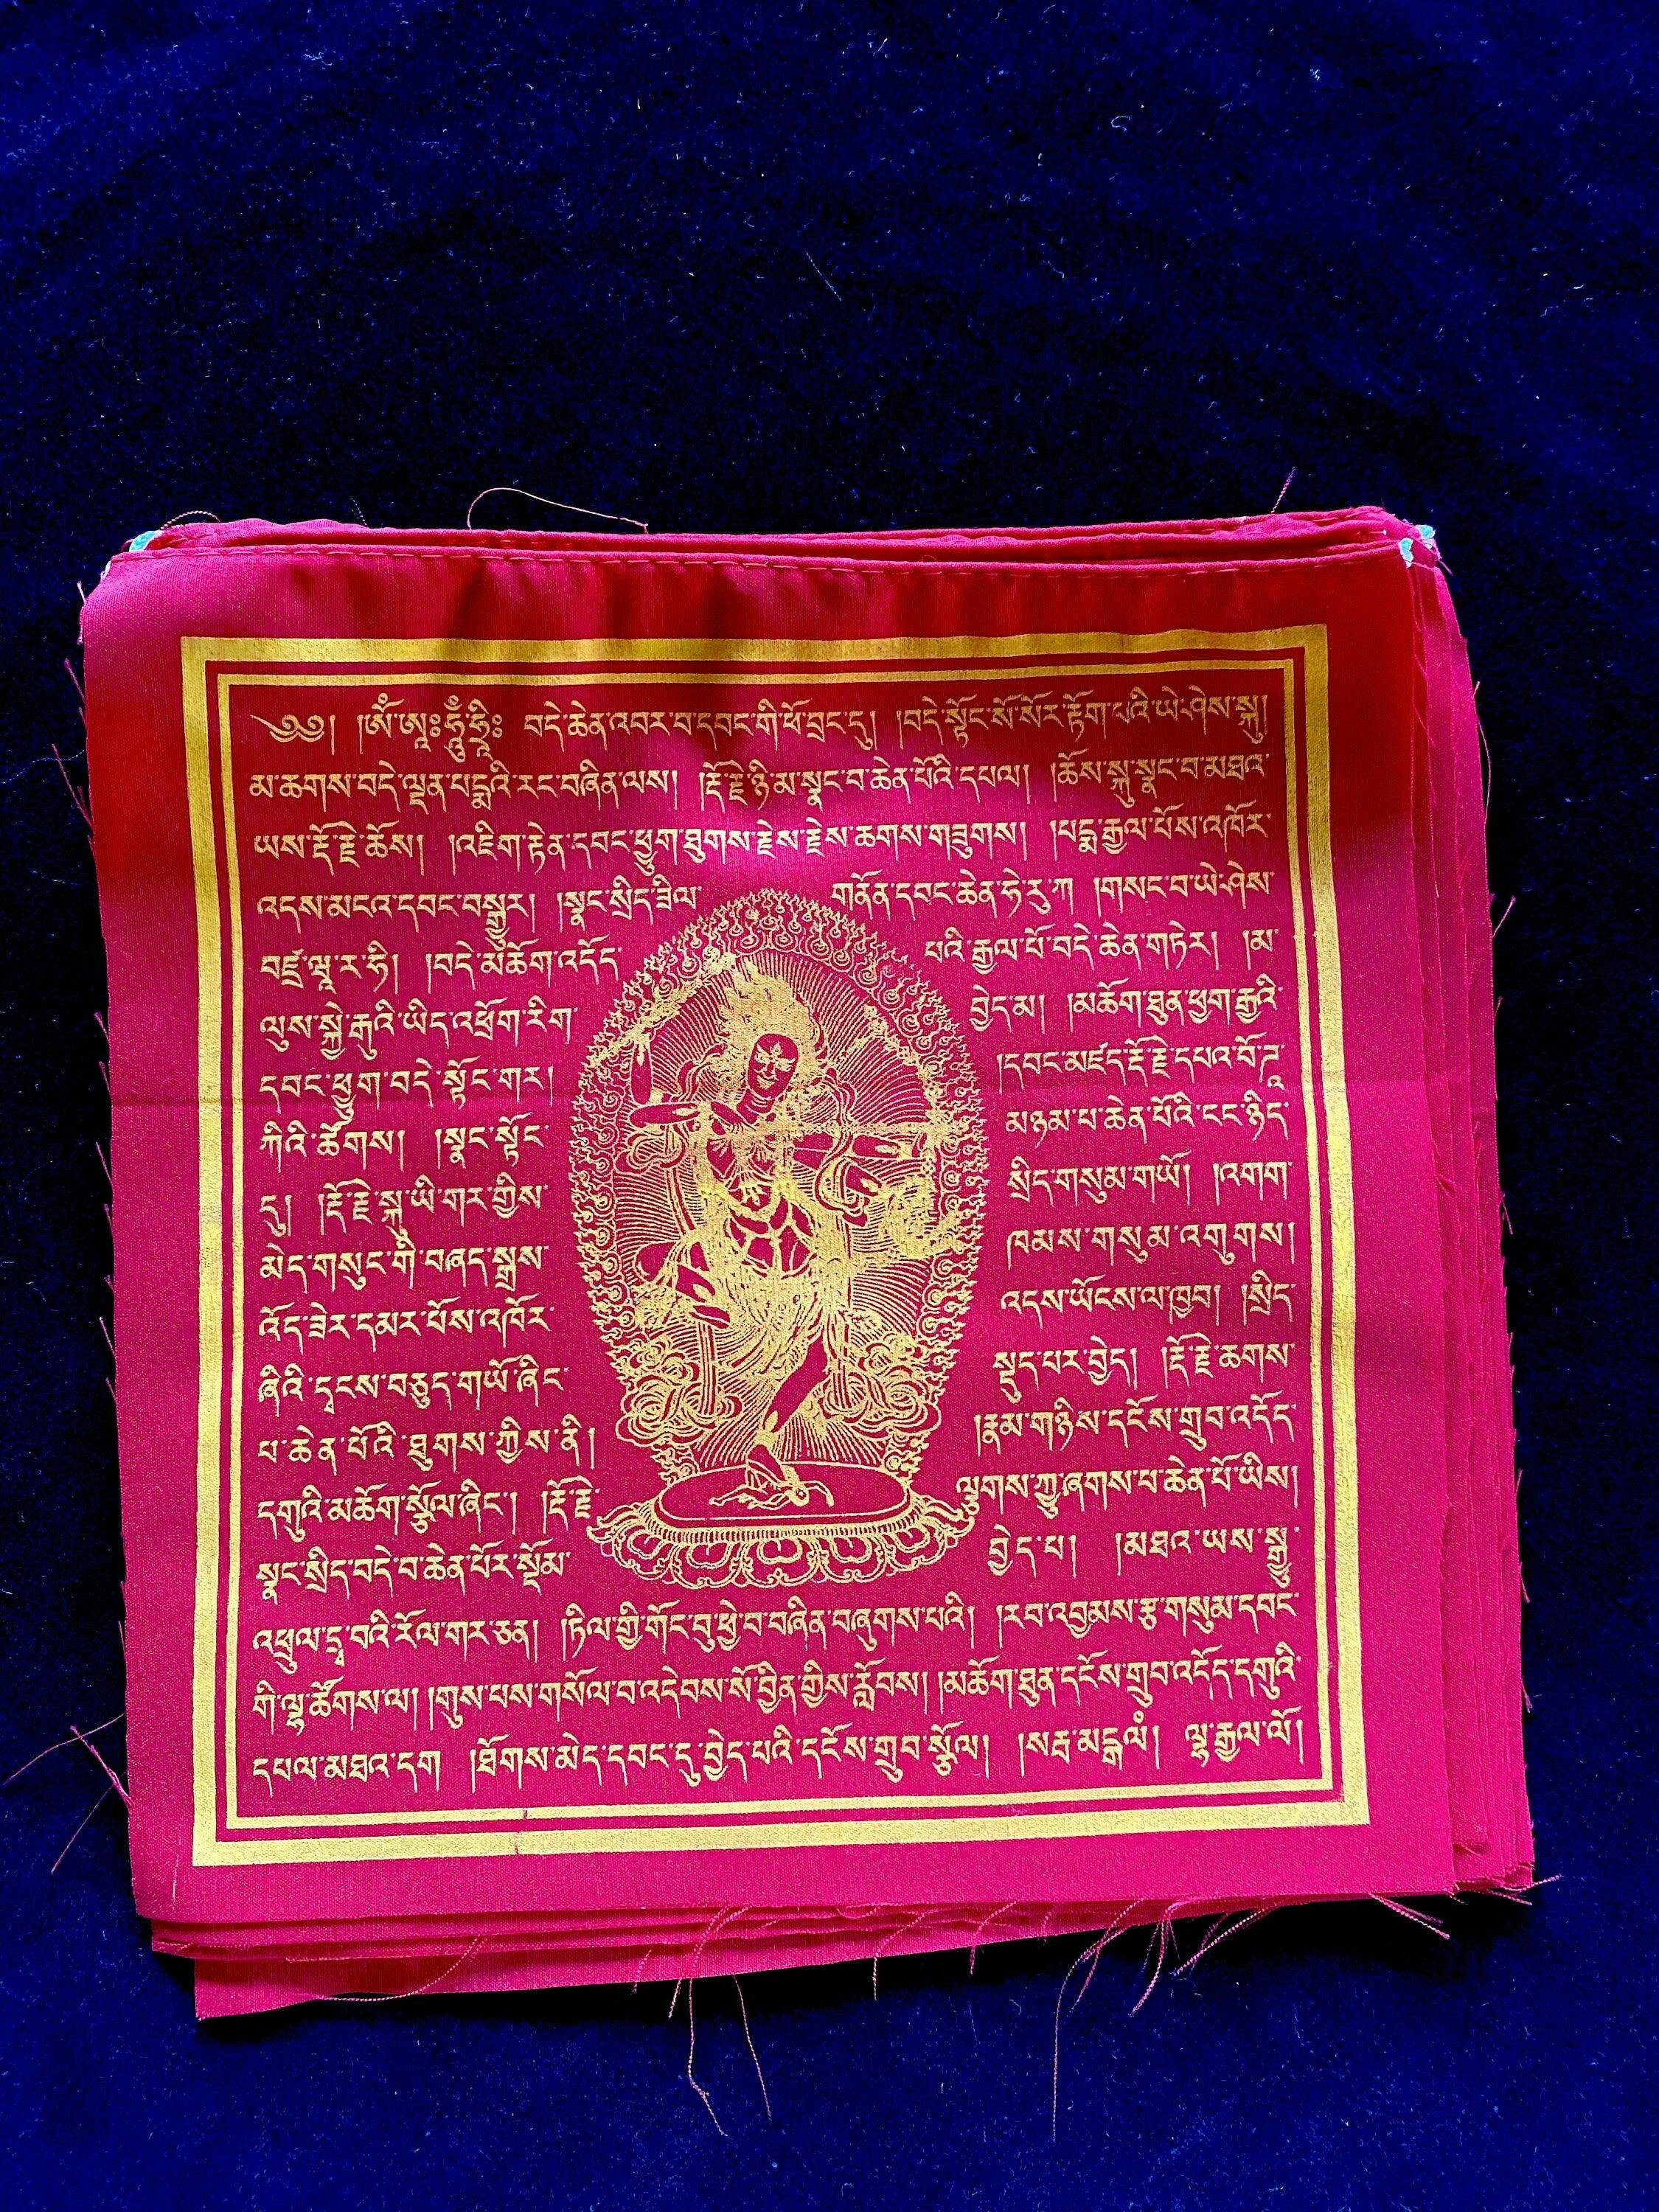 ༄༅། །ༀ་ཨཱཿཧཱུྃ་ཧྲཱིཿ བདེ་ཆེན་འབར་བ་དབང་གི་ཕོ་བྲང་དུ། །བདེ་སྟོང་སོ་སོར་རྟོག་པའི་ཡེ་ཤེས་སྐུ།
མ་ཆགས་བདེ་ལྡན་པདྨའི་རང་བཞིན་ལས། །རྡོ་རྗེ་ཉི་མ་སྣང་བ་ཆེན་པོའི་དཔལ། །ཆོས་སྐུ་སྣང་བ་མཐའ་
ཡས་རྡོ་རྗེ་ཆོས། །འཇིག་རྟེན་དབང་ཕྱུག་ཐུགས་རྗེས་རྗེས་ཆགས་གཟུགས། །པདྨ་རྒྱལ་པོས་འཁོར་
འདས་མངའ་དབང་བསྒྱུར། །སྣང་སྲིད་ཟིལ་ གནོན་དབང་ཆེན་ཧེ་རུ་ཀ །གསང་བ་ཡེ་ཤེས་
བཛྲ་ཝཱ་ར་ཧི། །བདེ་མཆོག་འདོད་ པའི་རྒྱལ་པོ་བདེ་ཆེན་གཏེར། །མ་
ལུས་སྐྱེ་རྒུའི་ཡིད་འཕྲོག་རིག་ བྱེད་མ། །མཆོག་ཐུན་ཕྱག་རྒྱའི་
དབང་ཕྱུག་བདེ་སྟོང་གར། །དབང་མཛད་རྡོ་རྗེ་དཔའ་བོ་ཌཱ་
ཀིའི་ཚོགས། །སྣང་སྟོང་ མཉམ་པ་ཆེན་པོའི་ངང་ཉིད་
དུ། །རྡོ་རྗེ་སྐུ་ཡི་གར་གྱིས་ སྲིད་གསུམ་གཡོ། །འགག་
མེད་གསུང་གི་བཞད་སྒྲས་ ཁམས་གསུམ་འགུགས།
འོད་ཟེར་དམར་པོས་འཁོར་ འདས་ཡོངས་ལ་ཁྱབ། །སྲིད་
ཞིའི་དྭངས་བཅུད་གཡོ་ཞིང་ སྡུད་པར་བྱེད། །རྡོ་རྗེ་ཆགས་
པ་ཆེན་པོའི་ཐུགས་ཀྱིས་ནི། །རྣམ་གཉིས་དངོས་གྲུབ་འདོད་
དགུའི་མཆོག་སྩོལ་ཞིང་། །རྡོ་རྗེ་ ལྕགས་ཀྱུ་ཞགས་པ་ཆེན་པོ་ཡིས།
སྣང་སྲིད་བདེ་བ་ཆེན་པོར་སྡོམ་ བྱེད་པ། །མཐའ་ཡས་སྒྱུ་
འཕྲུལ་དྲྭ་བའི་རོལ་གར་ཅན། །ཏིལ་གྱི་གོང་བུ་ཕྱེ་བ་བཞིན་བཞུགས་པའི། །རབ་འབྱམས་རྩ་གསུམ་དབང་
གི་ལྷ་ཚོགས་ལ། །གུས་པས་གསོལ་བ་འདེབས་སོ་བྱིན་གྱིས་རློབས། །མཆོག་ཐུན་དངོས་གྲུབ་འདོད་དགུའི་
དཔལ་མཐའ་དག །ཐོགས་མེད་དབང་དུ་བྱེད་པའི་དངོས་གྲུབ་སྩོལ། །སརྦ་མངྒལཾ། ལྷ་རྒྱལ་ལོ།